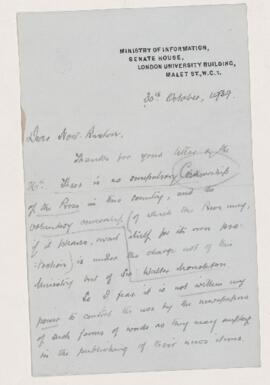 MINISTRY OF INFORMATION,
SENATE HOUSE,
LONDON UNIVERSITY BUILDING,
MALET ST., W.C.1.
30th October, 1939.
Dear
Thanks for your letter of the
There is no compulsory Censorship
of the Press in this country, and the
voluntary censorship (of which the Press may,
if it please, avail itself for its own pro-
tection) is under the charge not of this
Ministry but of Sir Walter Monckton.
So I fear it is not within my
power to control the use by the newspapers
of such forms of words as they may employ
in the publishing of their news items.